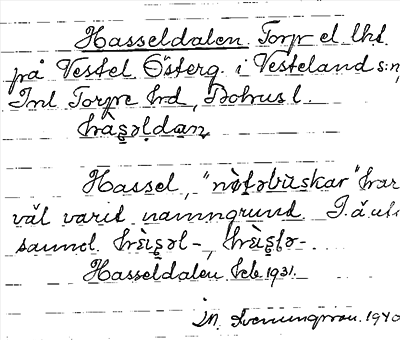 Hasseldalen. Torp el. lht
på Vestel. Österg. i Vesteland s:n,
Inl Torpe hrd, Bohusl.
hàsəldan

Hassel, "nòtəbùskar" har
väl varit namngrund. I. ä. ut-
saund. hɛ̀isəl-, hɛ̀islə-
Hasseldalen Leb. 1931.
M. Svenungsson. 1940